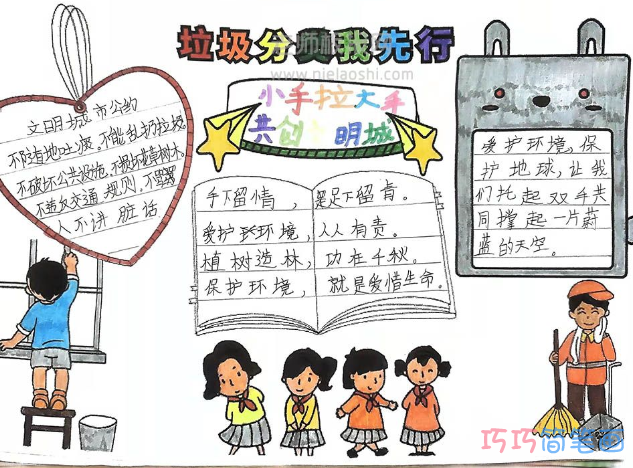 垃圾分类我先行
www.njelaoshi.com
小手拉大手
共创 明城
文明城市公约
不随地吐痰,不能乱扔垃圾
不破坏公共设施,不损坏 树木
不违反交通规则,不
人不讲脏话
手下留情,足下留青。
爱护环境,人人有责。
植树造林,功在千秋。
保护环境,就是爱惜生命。
爱护环境,保
护地球,让我
们托起双手共
同撑起一片蔚
蓝的天空。
巧巧简笔画